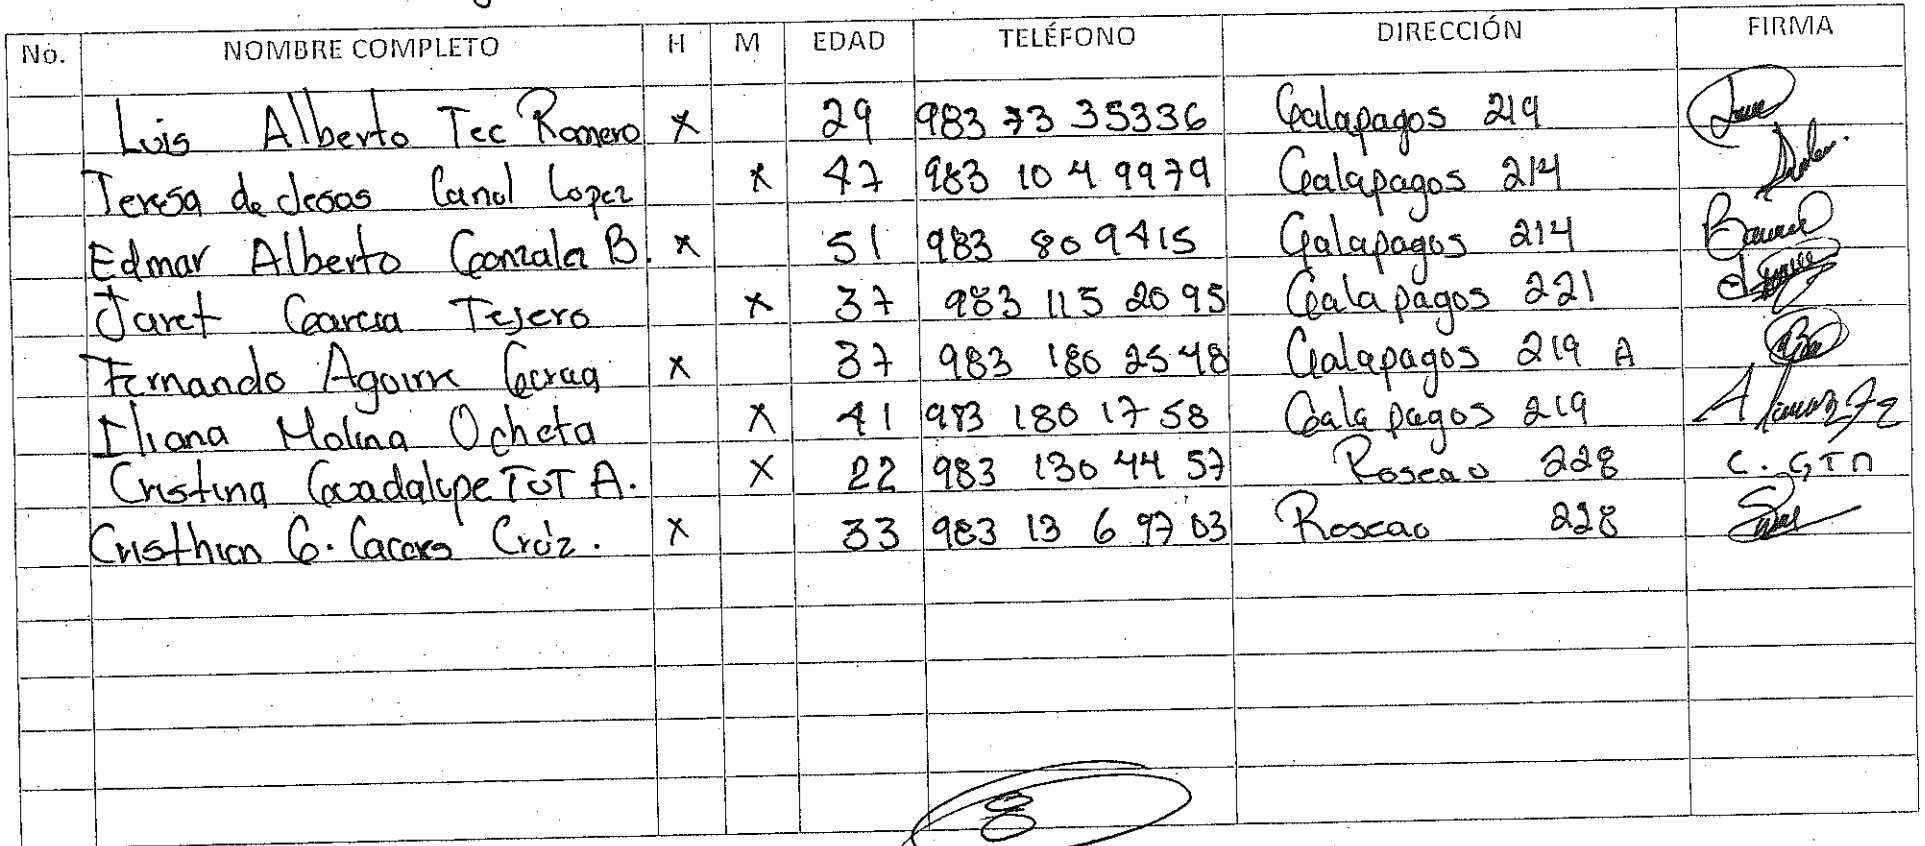 No. NOMBRE COMPLETO H M EDAD TELÉFONO DIRECCIÓN FIRMA
Luis Alberto Tec Romero X 29 983 73 35336 Galapagos 219
Teresa de Jesos Canul Lopez X 47 983 10 4 9979 Galapagos 214
Edmar Alberto Gonzalez B. X 51 983 809415 Galapagos 214
Jaret Garcia Tejero X 37 983 115 2095 Galapagos 221
Fernando Aguirre X 37 983 180 2548 Galapagos 219 A
Iliana Molina Ocheta X 41 983 180 1758 Galapagos 219
Cristina Guadalupe TUT A. X 22 983 130 44 57 Roseao 228 C. GTA
Cristhian G. Caceres Cruz. X 33 983 13 6 97 03 Roseao 228
8